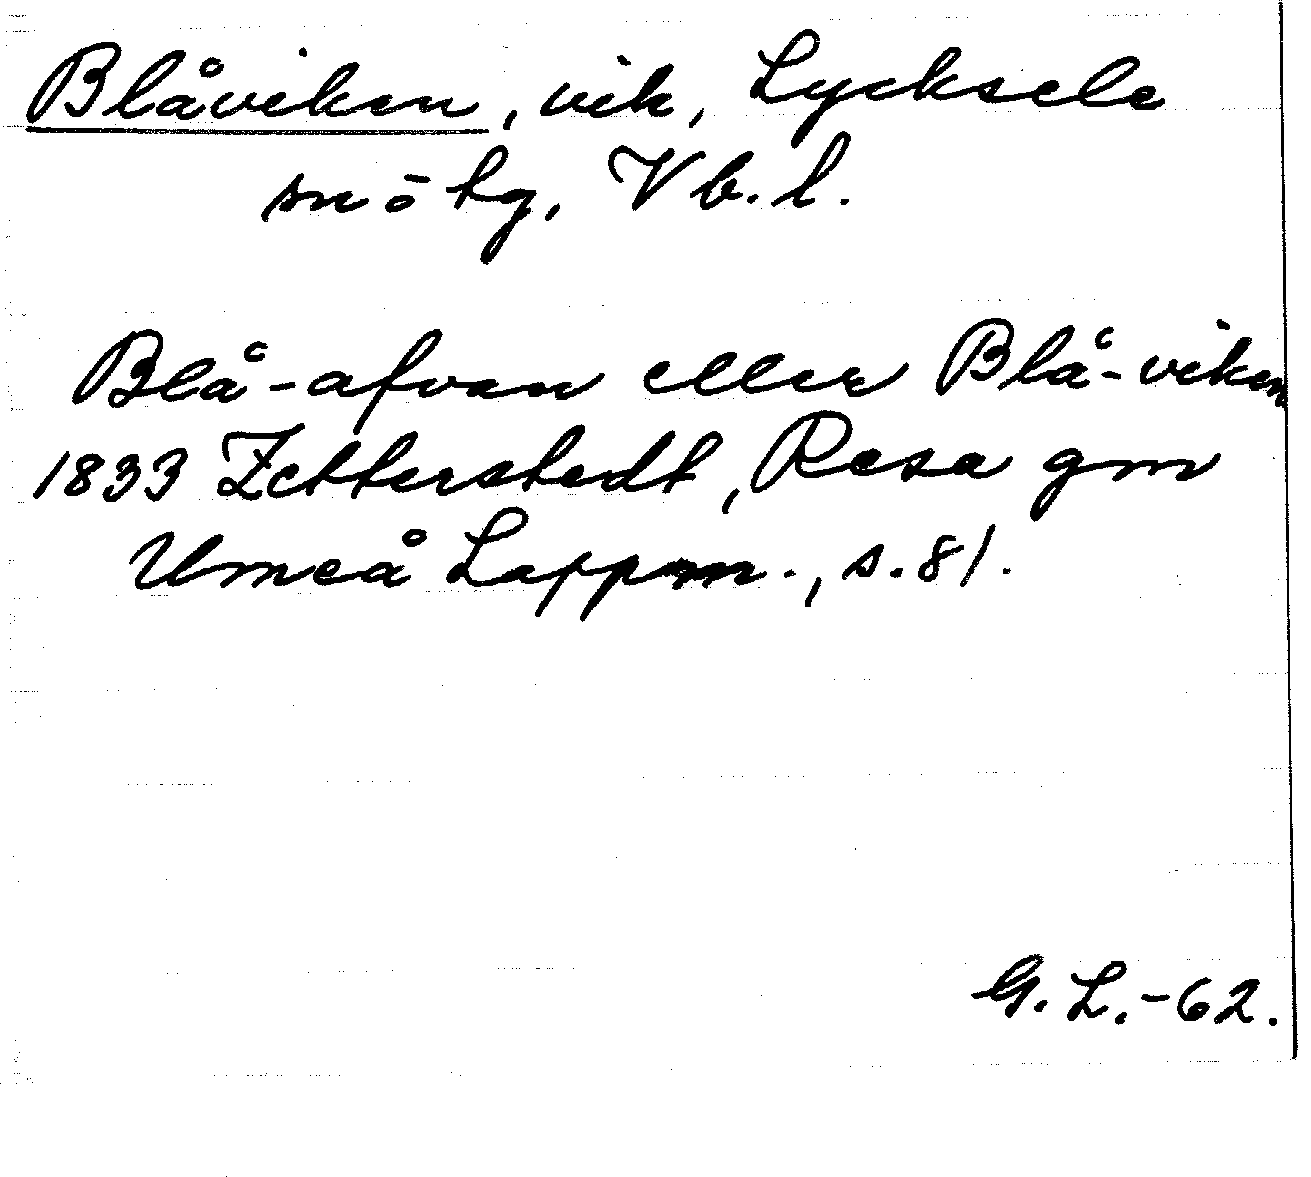 Blåviken, vik, Lycksele
sn o tg, Vb. l.
Blå-afvan eller Blå-viken
1833 Zetterstedt, Resa gm
Umeå Lappm., s. 81.
G. L. -62.